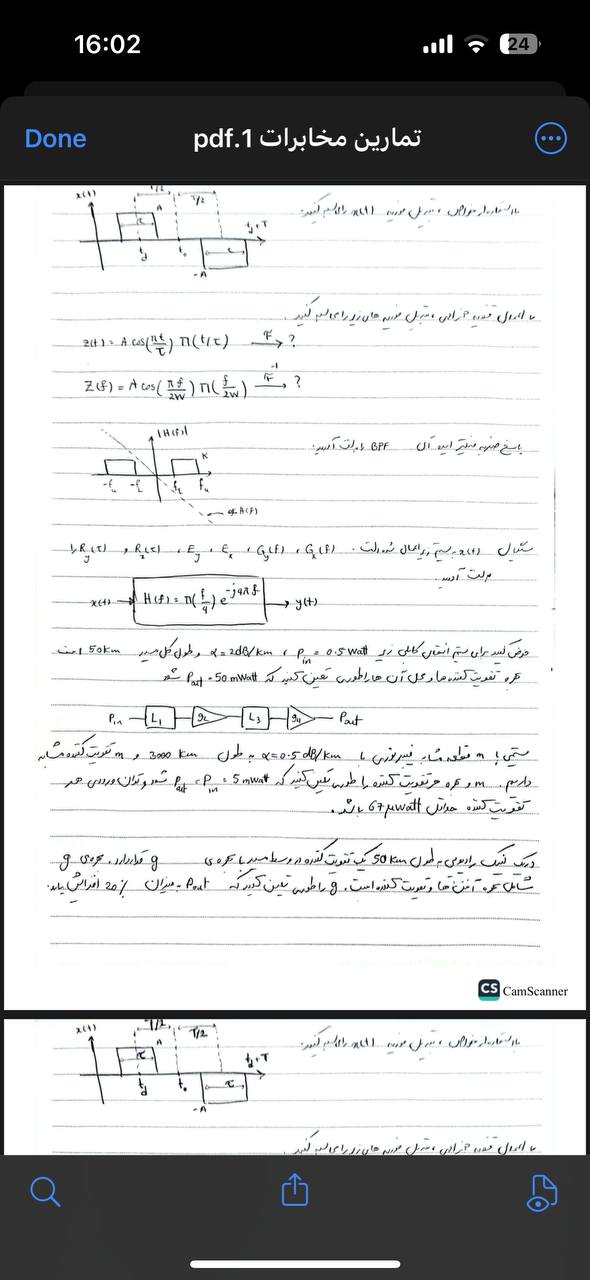 16:02
24
Done
تمارین مخابرات 1.pdf
x(t)
T/2
T/2
A
τ
t_d
t_0
t_d+T
τ
-A
با استفاده از خواص، تبدیل فوریه x(t) را محاسبه کنید:
با اعمال قضیه همزادی، تبدیل فوریه های زیر را محاسبه کنید.
z(t) = A cos(πt/τ) Π(t/τ) →F ?
Z(f) = A cos(πf/2W) Π(f/2W) →F^-1 ?
پاسخ ضربه فیلتر ایده آل BPF را بدست آورید:
|H(f)|
K
-f_u -f_L f_L f_u
∢H(f)
سیگنال x(t) به سیستم زیر اعمال شده است. G_x(f) ، G_y(f) ، E_x ، E_y ، R_x(τ) و R_y(τ) را
بدست آورید.
x(t) → H(f) = Π(f/4) e^-j4πf → y(t)
فرض کنید برای سیستم انتقال کابلی زیر P_in = 0.5 watt ، α = 2dB/km و طول کل مسیر 50 km است
بهره تقویت کننده ها و محل آن ها را طوری تعیین کنید که P_out = 50 mWatt شود
P_in L_1 g_2 L_3 g_4 P_out
سیستمی با m قطعه مشابه فیبر نوری با α = 0.5 dB/km به طول 3000 km و m تقویت کننده مشابه
داریم. m و بهره هر تقویت کننده را طوری تعیین کنید که P_out = P_in = 5 mWatt شود و توان ورودی هر
تقویت کننده حداقل 67 μwatt باشد.
در یک لینک رادیویی به طول 50 km یک تقویت کننده در وسط مسیر با بهره ی g قرار دارد. بهره ی g
شامل بهره آنتن ها و تقویت کننده است. g را طوری تعیین کنید که P_out به میزان 20% افزایش یابد.
CS CamScanner
x(t)
T/2
T/2
A
τ
t_d
t_0
t_d+T
τ
-A
با استفاده از خواص، تبدیل فوریه x(t) را محاسبه کنید:
با اعمال قضیه همزادی، تبدیل فوریه های زیر را محاسبه کنید.